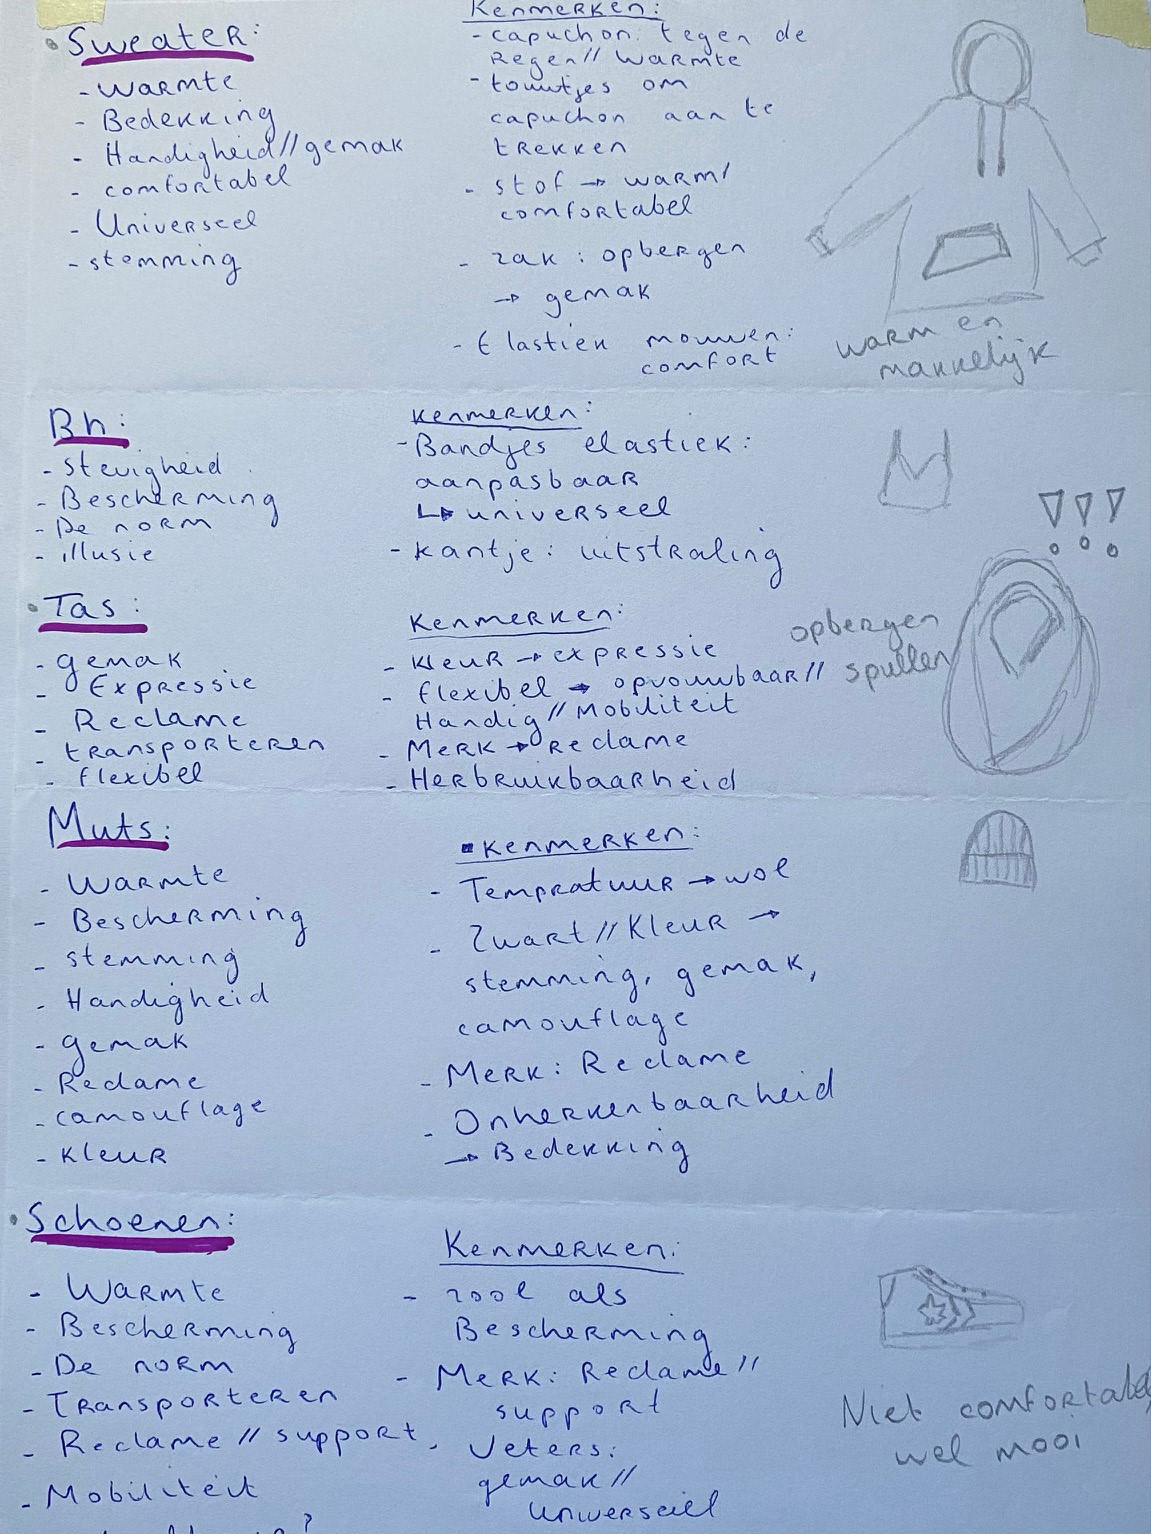 • Sweater:
- Warmte
- Bedekking
- Handigheid//gemak
- comfortabel
- Universeel
- stemming
Kenmerken:
- capuchon: tegen de
Regen// Warmte
- touwtjes om
capuchon aan te
trekken
- stof → warm/
comfortabel
- zak: opbergen
→ gemak
- Elastiek mouwen:
comfort
warm en
makkelijk
Bh:
- stevigheid
- Bescherming
- De norm
- illusie
Kenmerken:
- Bandjes elastiek:
aanpasbaar
↳ universeel
- kantje: uitstraling
• Tas:
- gemak
- Expressie
- Reclame
- transporteren
- flexibel
Kenmerken:
- kleur → expressie
- flexibel → opvouwbaar//
Handig//Mobiliteit
- Merk → Reclame
- Herbruikbaarheid
!!!
opbergen
spullen
Muts:
- Warmte
- Bescherming
- stemming
- Handigheid
- gemak
- Reclame
- camouflage
- kleur
Kenmerken:
- Tempratuur → wol
- Zwart//Kleur →
stemming, gemak,
camouflage
- Merk: Reclame
- Onherkenbaarheid
→ Bedekking
• Schoenen:
- Warmte
- Bescherming
- De norm
- Transporteren
- Reclame // support
- Mobiliteit
Kenmerken:
- zool als
Bescherming
- Merk: Reclame//
support
- Veters:
gemak//
Universeel
Niet comfortabel
wel mooi